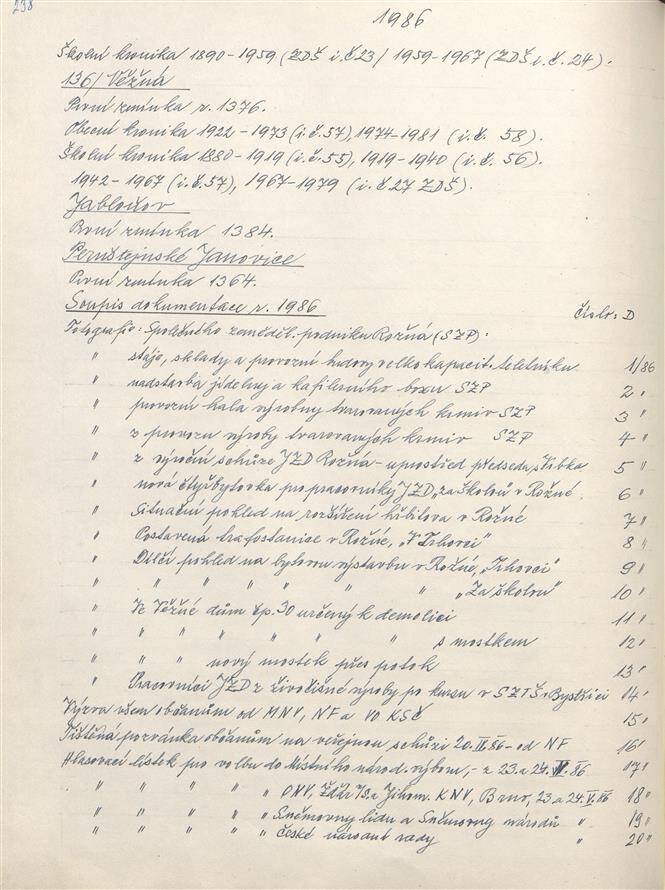 238
1986
Školní kronika 1890-1959 (ZDŠ i.č.23/ 1959-1967 (ZDŠ i.č. 24).
136/ Věžná
První zmínka r. 1376.
Obecní kronika 1922-1973 (i.č.57), 1974-1981 (i.č. 58).
Školní kronika 1880-1919 (i.č.55), 1919-1940 (i.č. 56).
1942-1967 (i.č.57), 1967-1979 (i.č.27 ZDŠ).
Jabloňov
První zmínka 1384.
Pernštejnské Janovice
První zmínka 1364.
Soupis dokumentace r. 1986 Číslo: D
Fotografie: Společného zeměděl. podniku Rožná (SZP):
" stáje, sklady a provozní budovy velkokapacit. teletníku 1/86
" nadstavba jídelny a kafilerního boxu SZP 2 "
" provozní hala výrobny tvarovaných krmiv SZP 3 "
" z provozu výroby tvarovaných krmiv SZP 4 "
" z výroční schůze JZD Rožná - uprostřed předseda 5 "
" nová čtyřbytovka pro pracovníky JZD, "za školou" v Rožné 6 "
" Situační pohled na rozšíření hřbitova v Rožné 7 "
" Postavená trafostanice v Rožné, "V Trhovci" 8 "
" Dílčí pohled na bytovou výstavbu v Rožné, "Trhovci" 9 "
" " " " " " "Za školou" 10 "
" Ve Věžné dům čp. 30 určený k demolici 11 "
" " " " " " " s mostkem 12 "
" " " nový mostek přes potok 13 "
" Pracovníci JZD z živočišné výroby po kursu v SZTŠ v Bystřici 14 "
Výzva všem občanům od MNV, NF a VO KSČ 15 "
Tištěná pozvánka občanům na veřejnou schůzi 20. 86 - od NF 16 "
Hlasovací lístek pro volbu do Místního národ. výboru, - z 23. a 24. V. 86 17 "
" " " " ONV, Žďár n/S. a Jihom. KNV, Brno, 23. a 24. V. 86 18 "
" " " " Sněmovny lidu a Sněmovny národů " 19 "
" " " " České národní rady " 20 "